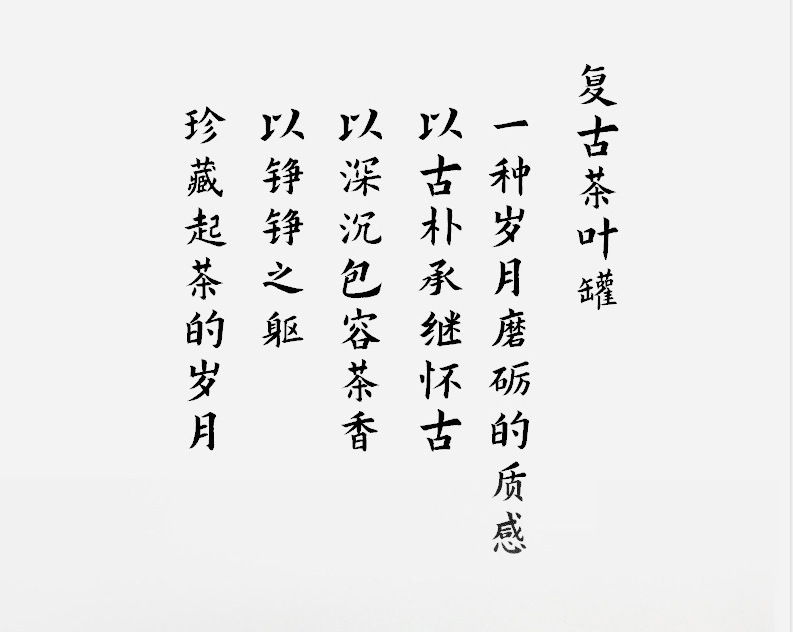 复古茶叶罐
一种岁月磨砺的质感
以古朴承继怀古
以深沉包容茶香
以铮铮之躯
珍藏起茶的岁月